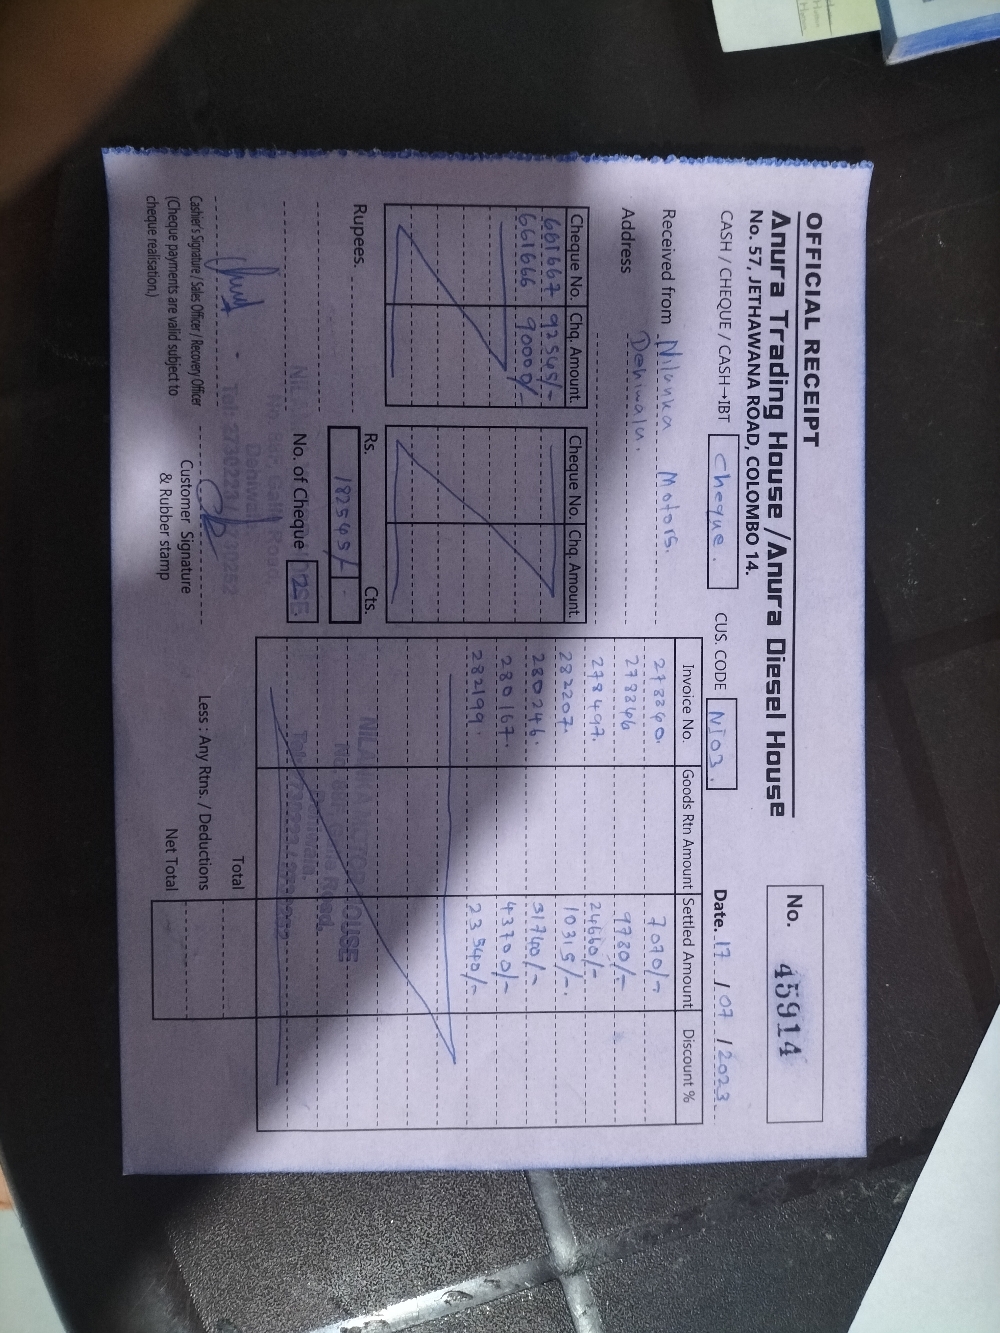 OFFICIAL RECEIPT
No. 45914
Anura Trading House / Anura Diesel House
No. 57, JETHAWANA ROAD, COLOMBO 14.
CASH / CHEQUE / CASH→IBT Cheque. CUS. CODE NI03. Date. 17 / 07 / 2023
Received from Nilanka Motors.
Address Dehiwala.
Cheque No. Chq. Amount Cheque No. Chq. Amount
661667 92545/-
661666 90000/-
Invoice No. Goods Rtn Amount Settled Amount Discount %
278840. 7070/-
278846 9780/-
278497. 24660/-
282207. 10315/-.
280246. 31740/-
280167. 43700/-
282199. 23540/-
Rupees.
Rs. Cts.
182545/- -
No. of Cheque 2
Dehiwala
Tel: 2730223 /
Total
Less : Any Rtns. / Deductions
Net Total
Cashier's Signature / Sales Officer / Recovery Officer
(Cheque payments are valid subject to
cheque realisation.)
Customer Signature
& Rubber stamp